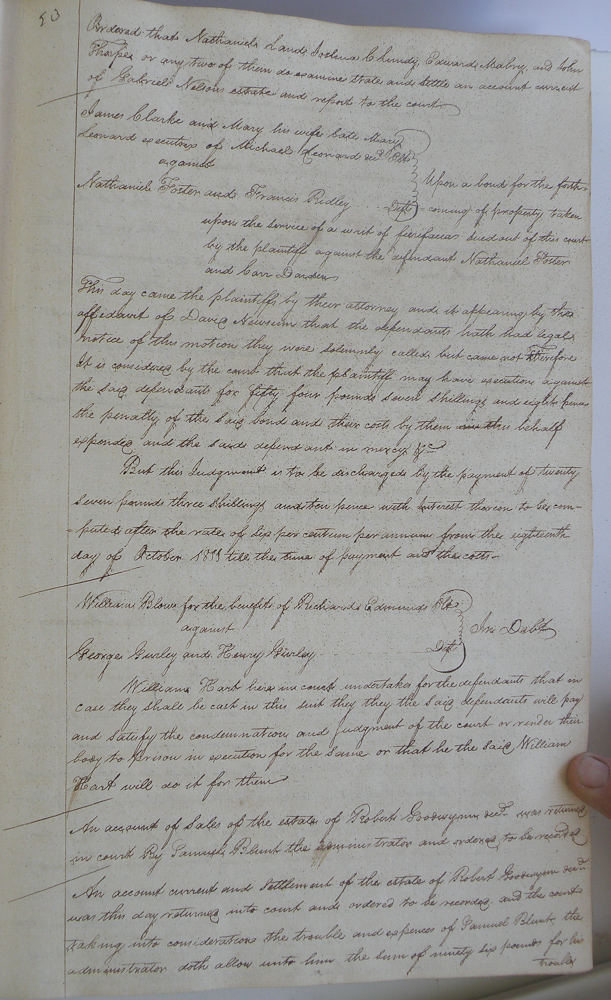 50
Ordered that Nathaniel Land, Joshua Claud, Edward Mabry, and John
Tharpe or any two of them do examine state and settle an account current
of Gabriel Nelsons estate and report to the court
James Clarke and Mary his wife late Mary
Leonard executrix of Michael Leonard decd. Plts
against
Nathaniel Foster and Francis Ridley Defts
Upon a bond for the forth-
-coming of property taken
upon the service of a writ of fierifacias sued out of this court
by the plaintiff against the defendant Nathaniel Foster
and Carr Darden
This day came the plaintiffs by their attorney and it appearing by the
affidavit of David Newsum that the defendants hath had legal
notice of this motion they were solemnly called but came not Therefore
It is considered by the court that the plaintiff may have execution against
the said defendants for fifty four pounds seven shillings and eight pence
the penalty of the said bond and their costs by them in this behalf
expended and the said defendant in mercy &c
But this Judgment is to be discharged by the payment of twenty
seven pounds three shillings and ten pence with Interest thereon to be com-
-puted after the rate of six per centum per annum from the eighteenth
day of October 1811 till the time of payment and the costs-
William Blow for the benefit of Richard Edmunds Plt
against
George Gurley and Henry Gurley Defts
In Debt
William Hart here in court undertakes for the defendants that in
case they shall be cast in this suit they they the said defendants will pay
and satisfy the condemnation and judgment of the court or render their
body to prison in execution for the same or that he the said William
Hart will do it for them
An account of Sales of the estate of Robert Goodwynn decd. was returned
in court By Samuel Blunt the administrator and ordered to be recorded
An account current and Settlement of the estate of Robert Goodwynn decd.
was this day returned into court and ordered to be recorded, and the court
taking into consideration the trouble and expences of Samuel Blunt, the
administrator doth allow unto him the sum of ninety six pounds for his
trouble